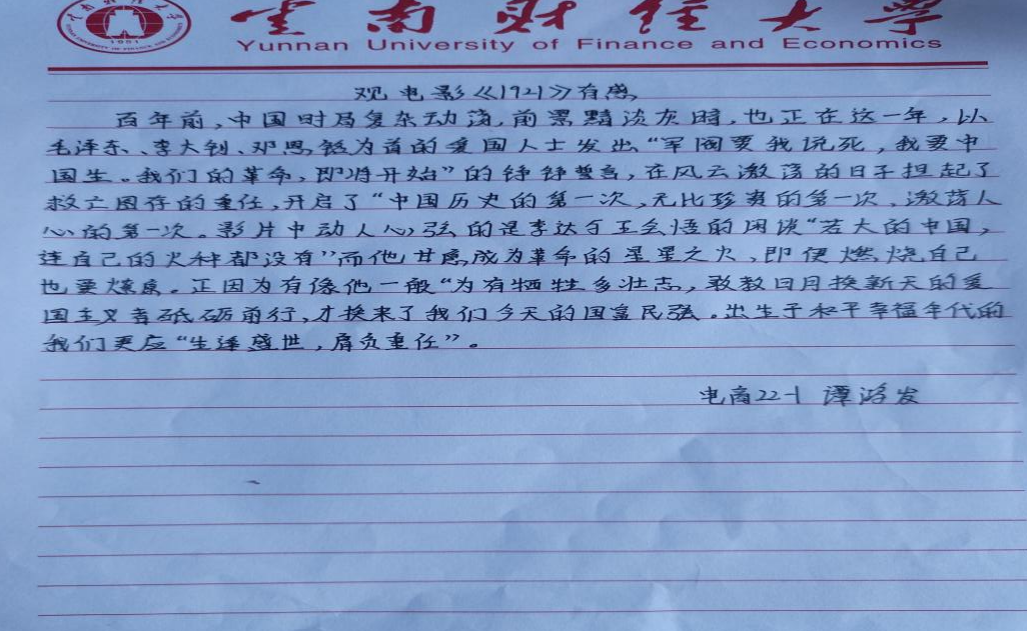 云南财经大学
Yunnan University of Finance and Economics
观电影《1921》有感
百年前,中国时局复杂动荡,前景黯淡灰暗,也正在这一年,以
毛泽东、李大钊、邓恩铭为首的爱国人士发出“军阀要我们死,我要中
国生。我们的革命,即将开始”的铮铮誓言,在风云激荡的日子担起了
救亡图存的重任,开启了“中国历史的第一次,无比珍贵的第一次,激荡人
心的第一次。影片中动人心弦的是李达与王会悟的闲谈“若大的中国,
连自己的火种都没有”而他甘愿成为革命的星星之火,即便燃烧自己
也要燎原。正因为有像他一般“为有牺牲多壮志,敢教日月换新天的爱
国主义者砥砺前行,才换来了我们今天的国富民强。出生于和平幸福年代的
我们更应“生逢盛世,肩负重任”。
电商22-1 谭鸿发